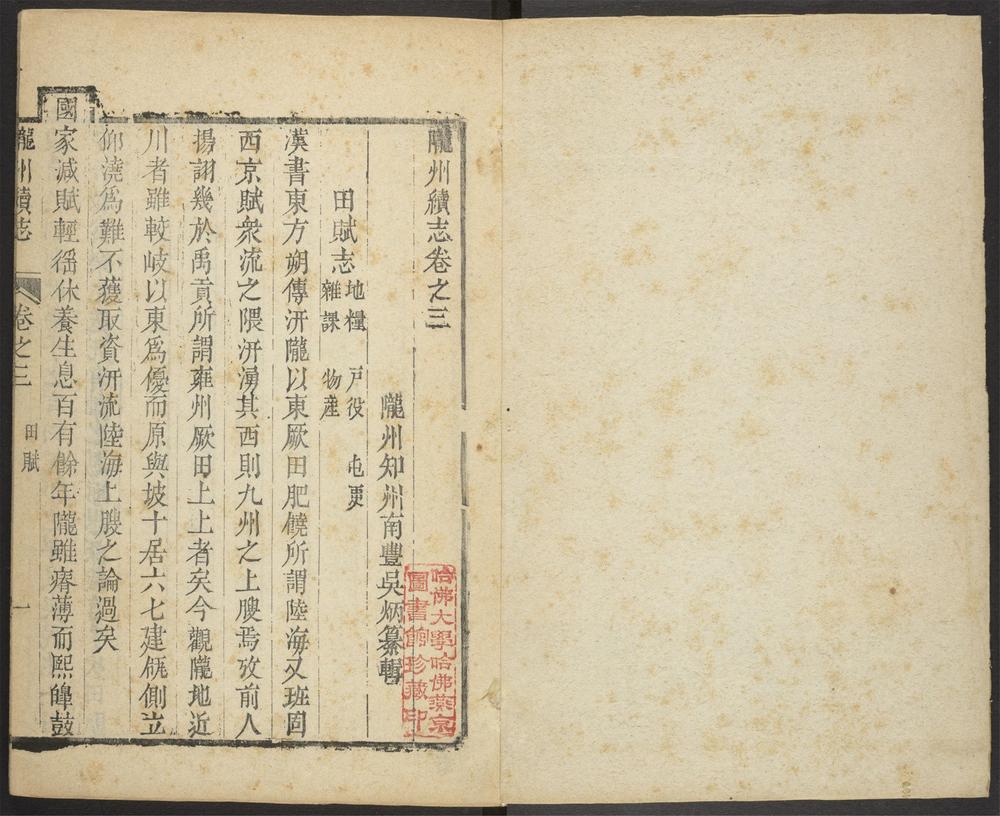 隴州續志卷之三
隴州知州南豐吳炳纂輯
田賦志 地糧 戶役 屯更 雜課 物產
漢書東方朔傳汧隴以東厥田肥饒所謂陸海又班固
西京賦衆流之隈汧湧其西則九州之上腴焉攷前人
揚詡幾於禹貢所謂雍州厥田上上者矣今觀隴地近
川者雖較岐以東爲優而原與坡十居六七建瓴側立
仰澆爲難不獲取資汧流陸海上腴之論過矣
國家減賦輕徭休養生息百有餘年隴雖瘠薄而熙皥鼓
隴州續志 卷之三 田賦 一
哈佛大學哈佛燕京
圖書館珍藏印